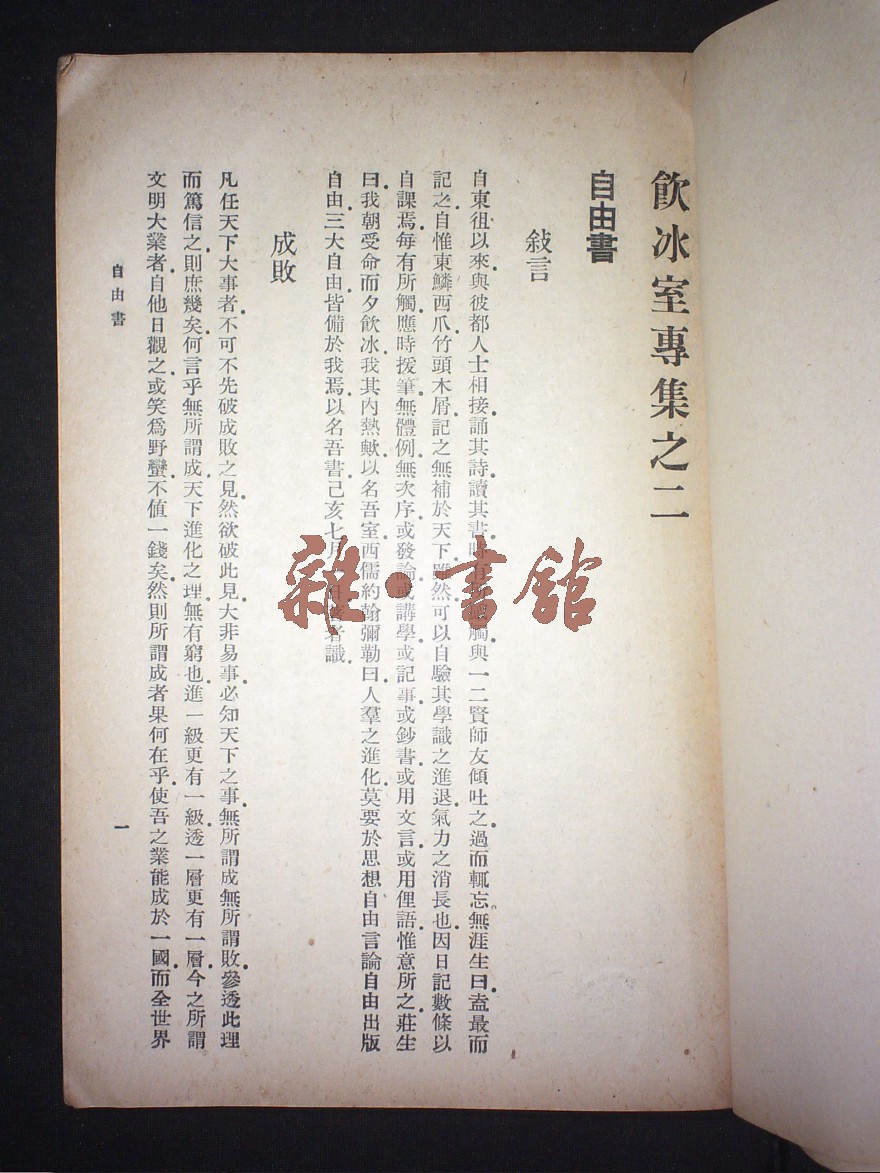 飲冰室專集之二
自由書
敍言
自東徂以來與彼都人士相接誦其詩讀其書時有所感觸與一二賢師友傾吐之過而輒忘無涯生曰盍最而
記之自惟東鱗西爪竹頭木屑記之無補於天下雖然可以自驗其學識之進退氣力之消長也因日記數條以
自課焉每有所觸應時援筆無體例無次序或發論或講學或記事或鈔書或用文言或用俚語惟意所之莊生
曰我朝受命而夕飲冰我其內熱歟以名吾室西儒約翰彌勒曰人羣之進化莫要於思想自由言論自由出版
自由三大自由皆備於我焉以名吾書己亥七月 者識
成敗
凡任天下大事者不可不先破成敗之見然欲破此見大非易事必知天下之事無所謂成無所謂敗參透此理
而篤信之則庶幾矣何言乎無所謂成天下進化之理無有窮也進一級更有一級透一層更有一層今之所謂
文明大業者自他日觀之或笑爲野蠻不值一錢矣然則所謂成者果何在乎使吾之業能成於一國而全世界
自由書
一
雜·書館